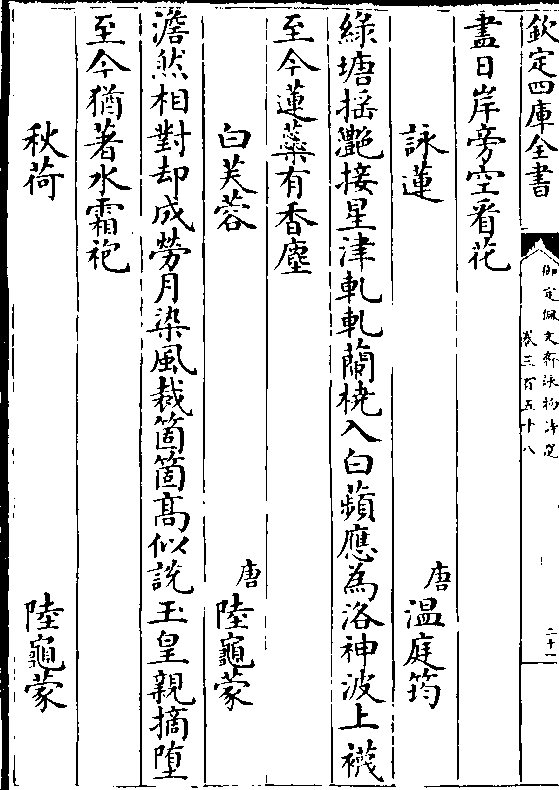 欽定四庫全書
御定佩文齋詠物詩選
卷三百五十八
二十一
盡日岸旁空看花
詠蓮 唐溫庭筠
綠塘摇灔接星津軋軋蘭橈入白蘋應為洛神波上襪
至今蓮蘂有香塵
白芙蓉 唐陸龜蒙
澹然相對却成勞月染風裁箇箇高似説玉皇親摘堕
至今猶著水霜袍
秋荷 陸龜蒙